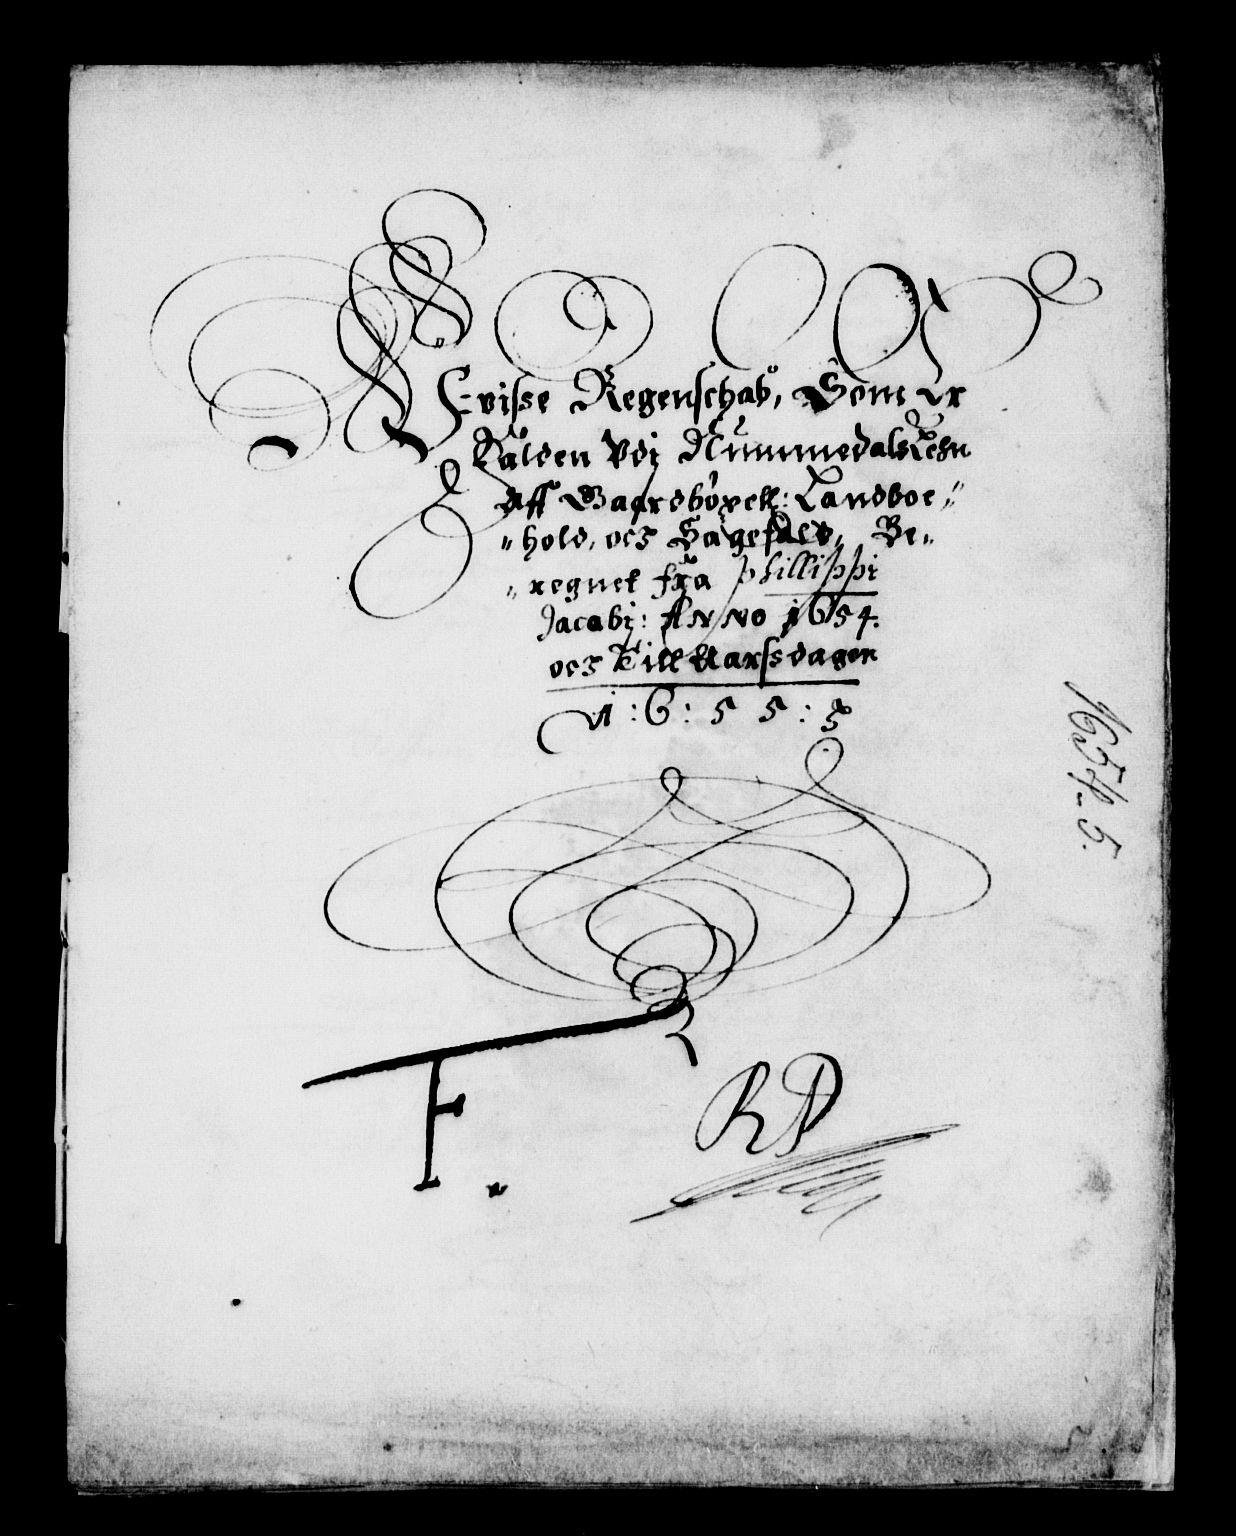 Wvisse Regenschab, Som Er
Falden Vdj NummedalsLehn
Aff Gaardbøxell: Landboe
hold, och Sagefald, Be
regnet fra Phillippi
Jacobj: Anno 1654.
och Till Aarssdagen
1:6:55:
F.
RP
1654-5.